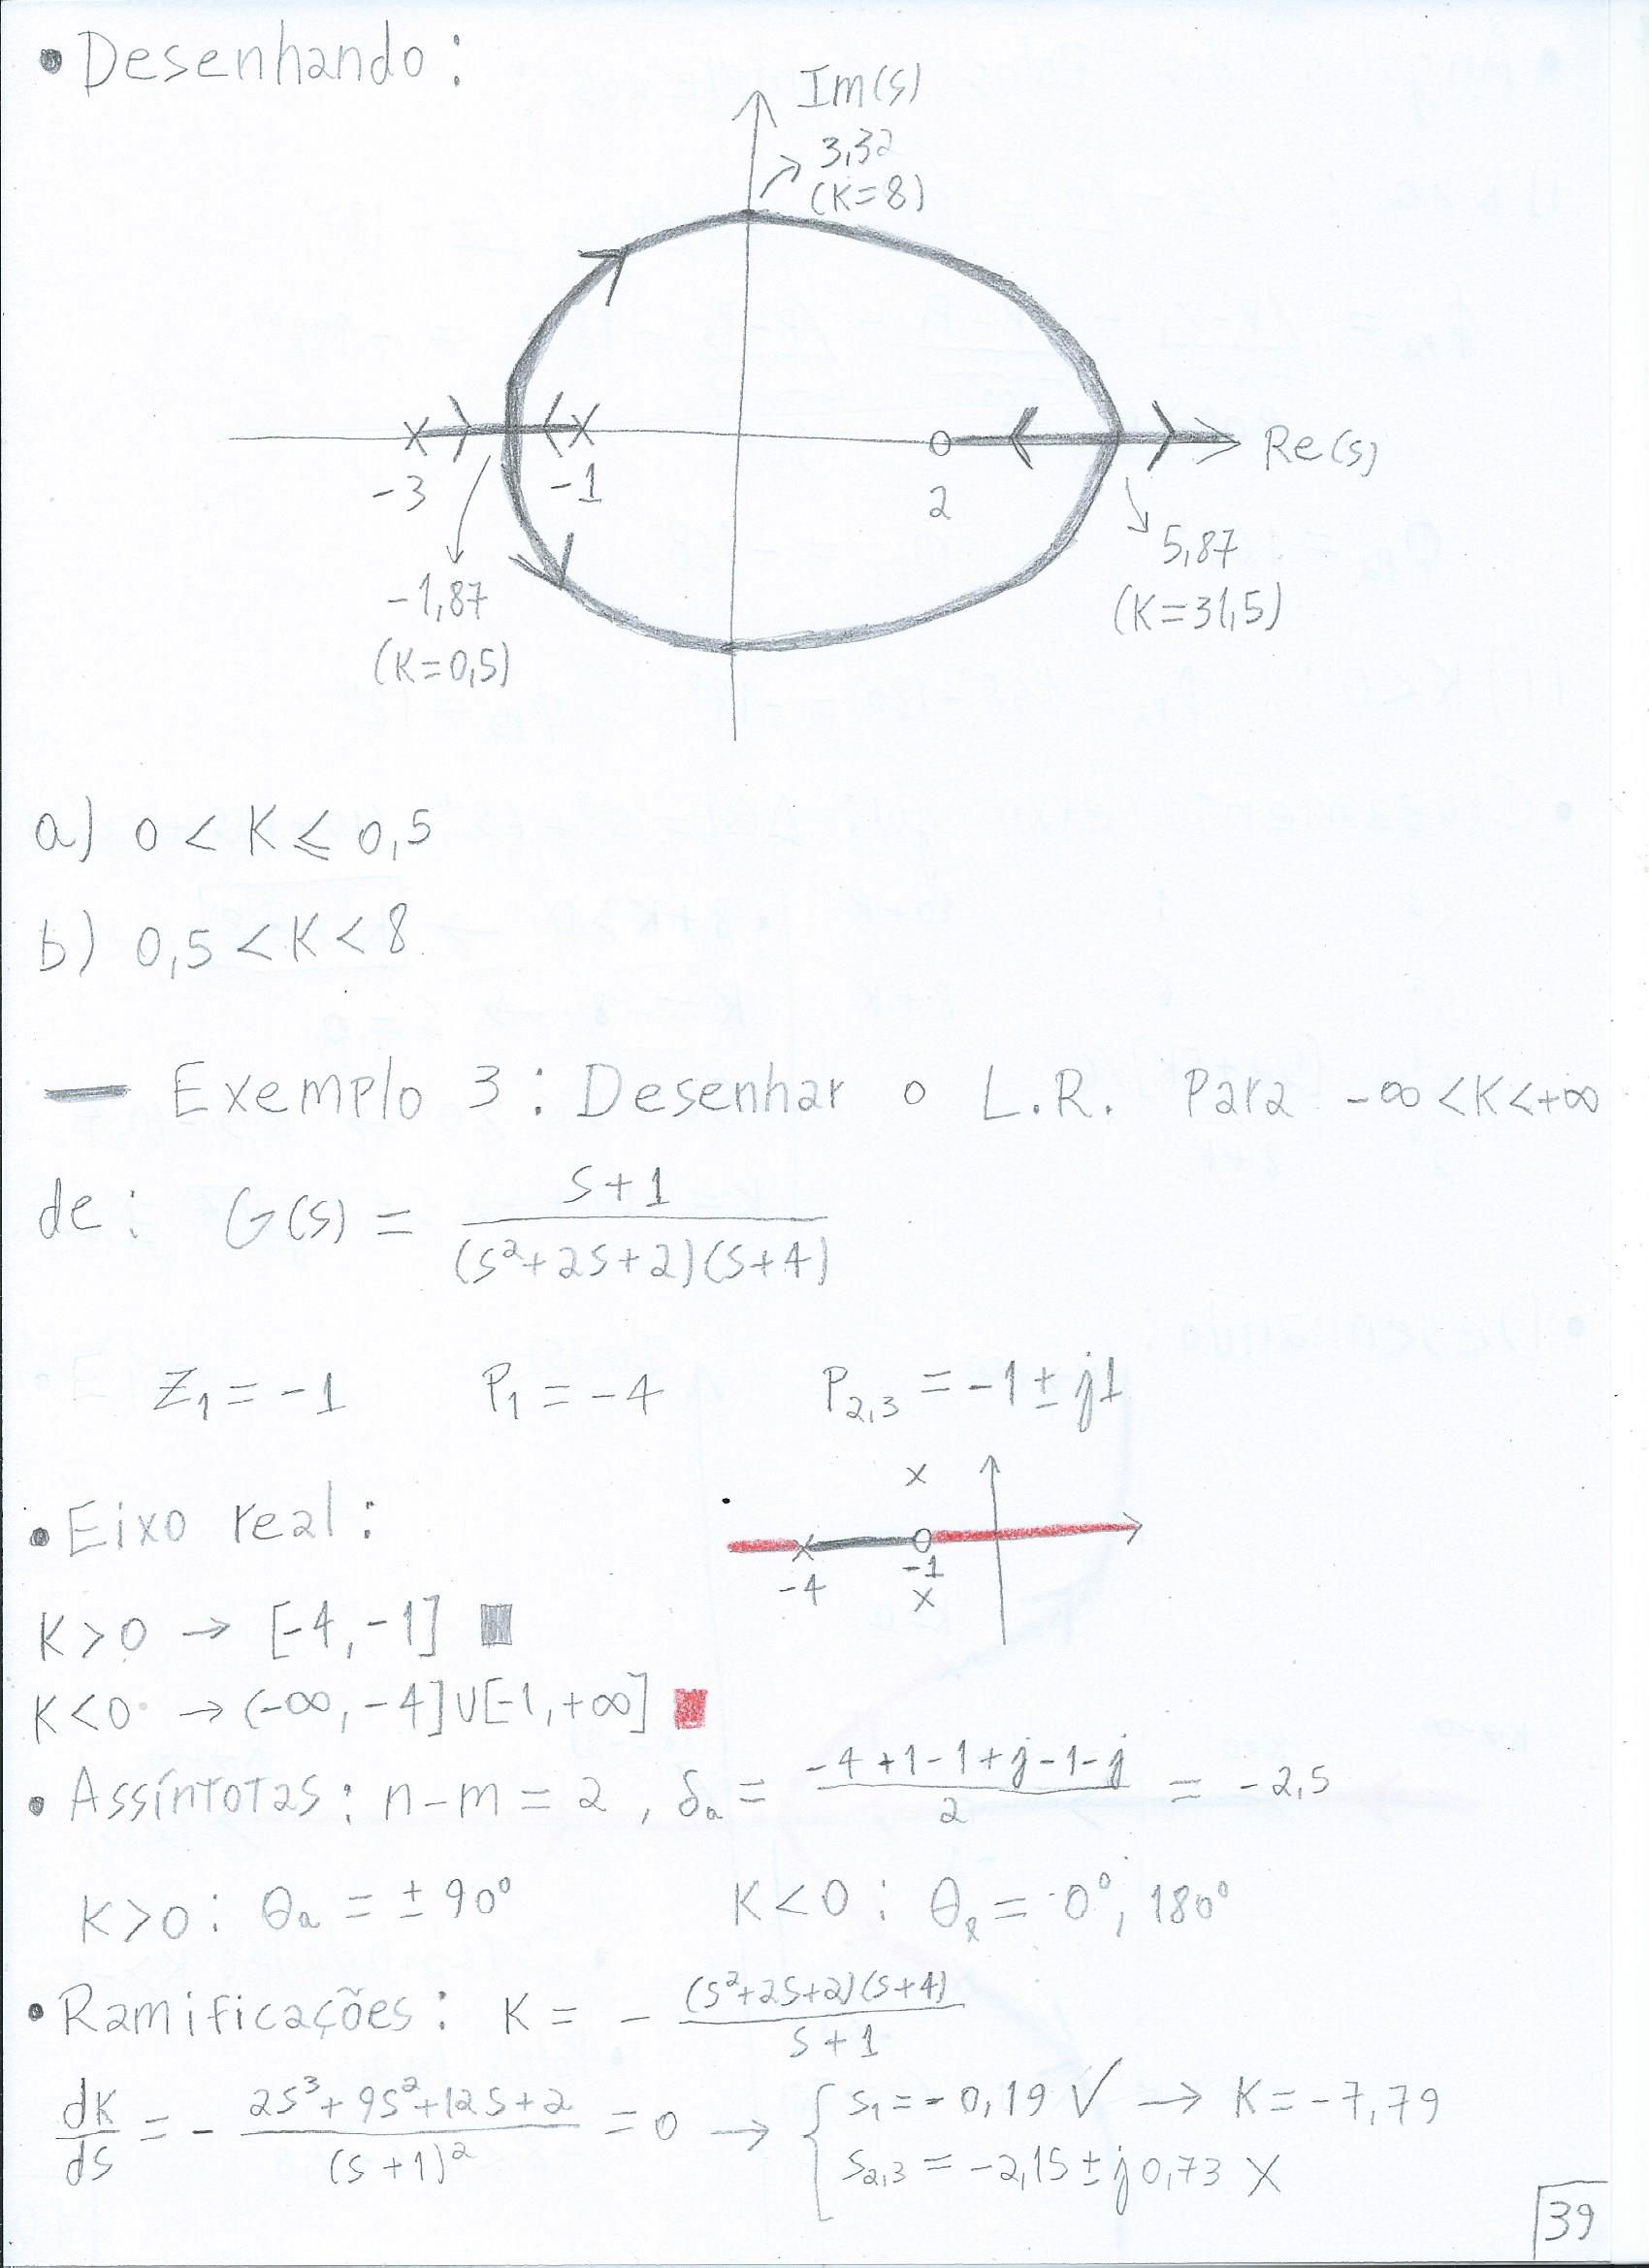 • Desenhando:
Im(s)
3,32
(K=8)
-3
-1
2
Re(s)
-1,87
(K=0,5)
5,87
(K=31,5)
a) 0 < K ⩽ 0,5
b) 0,5 < K < 8
— Exemplo 3: Desenhar o L.R. para -∞ < K < +∞
de: G(s) = (s+1) / ((s²+2s+2)(s+4))
Z₁ = -1 P₁ = -4 P₂,₃ = -1 ± j1
• Eixo real:
-4
-1
K>0 → [-4, -1]
K<0 → (-∞, -4]∪[-1, +∞]
• Assíntotas: n-m = 2, δₐ = (-4+1-1+j-1-j) / 2 = -2,5
K>0: θₐ = ±90° K<0: θₐ = 0°, 180°
• Ramificações: K = - ((s²+2s+2)(s+4)) / (s+1)
dK/ds = - (2s³+9s²+12s+2) / (s+1)² = 0 → { s₁ = -0,19 ✓ → K = -7,79
s₂,₃ = -2,15 ± j0,73 X
39